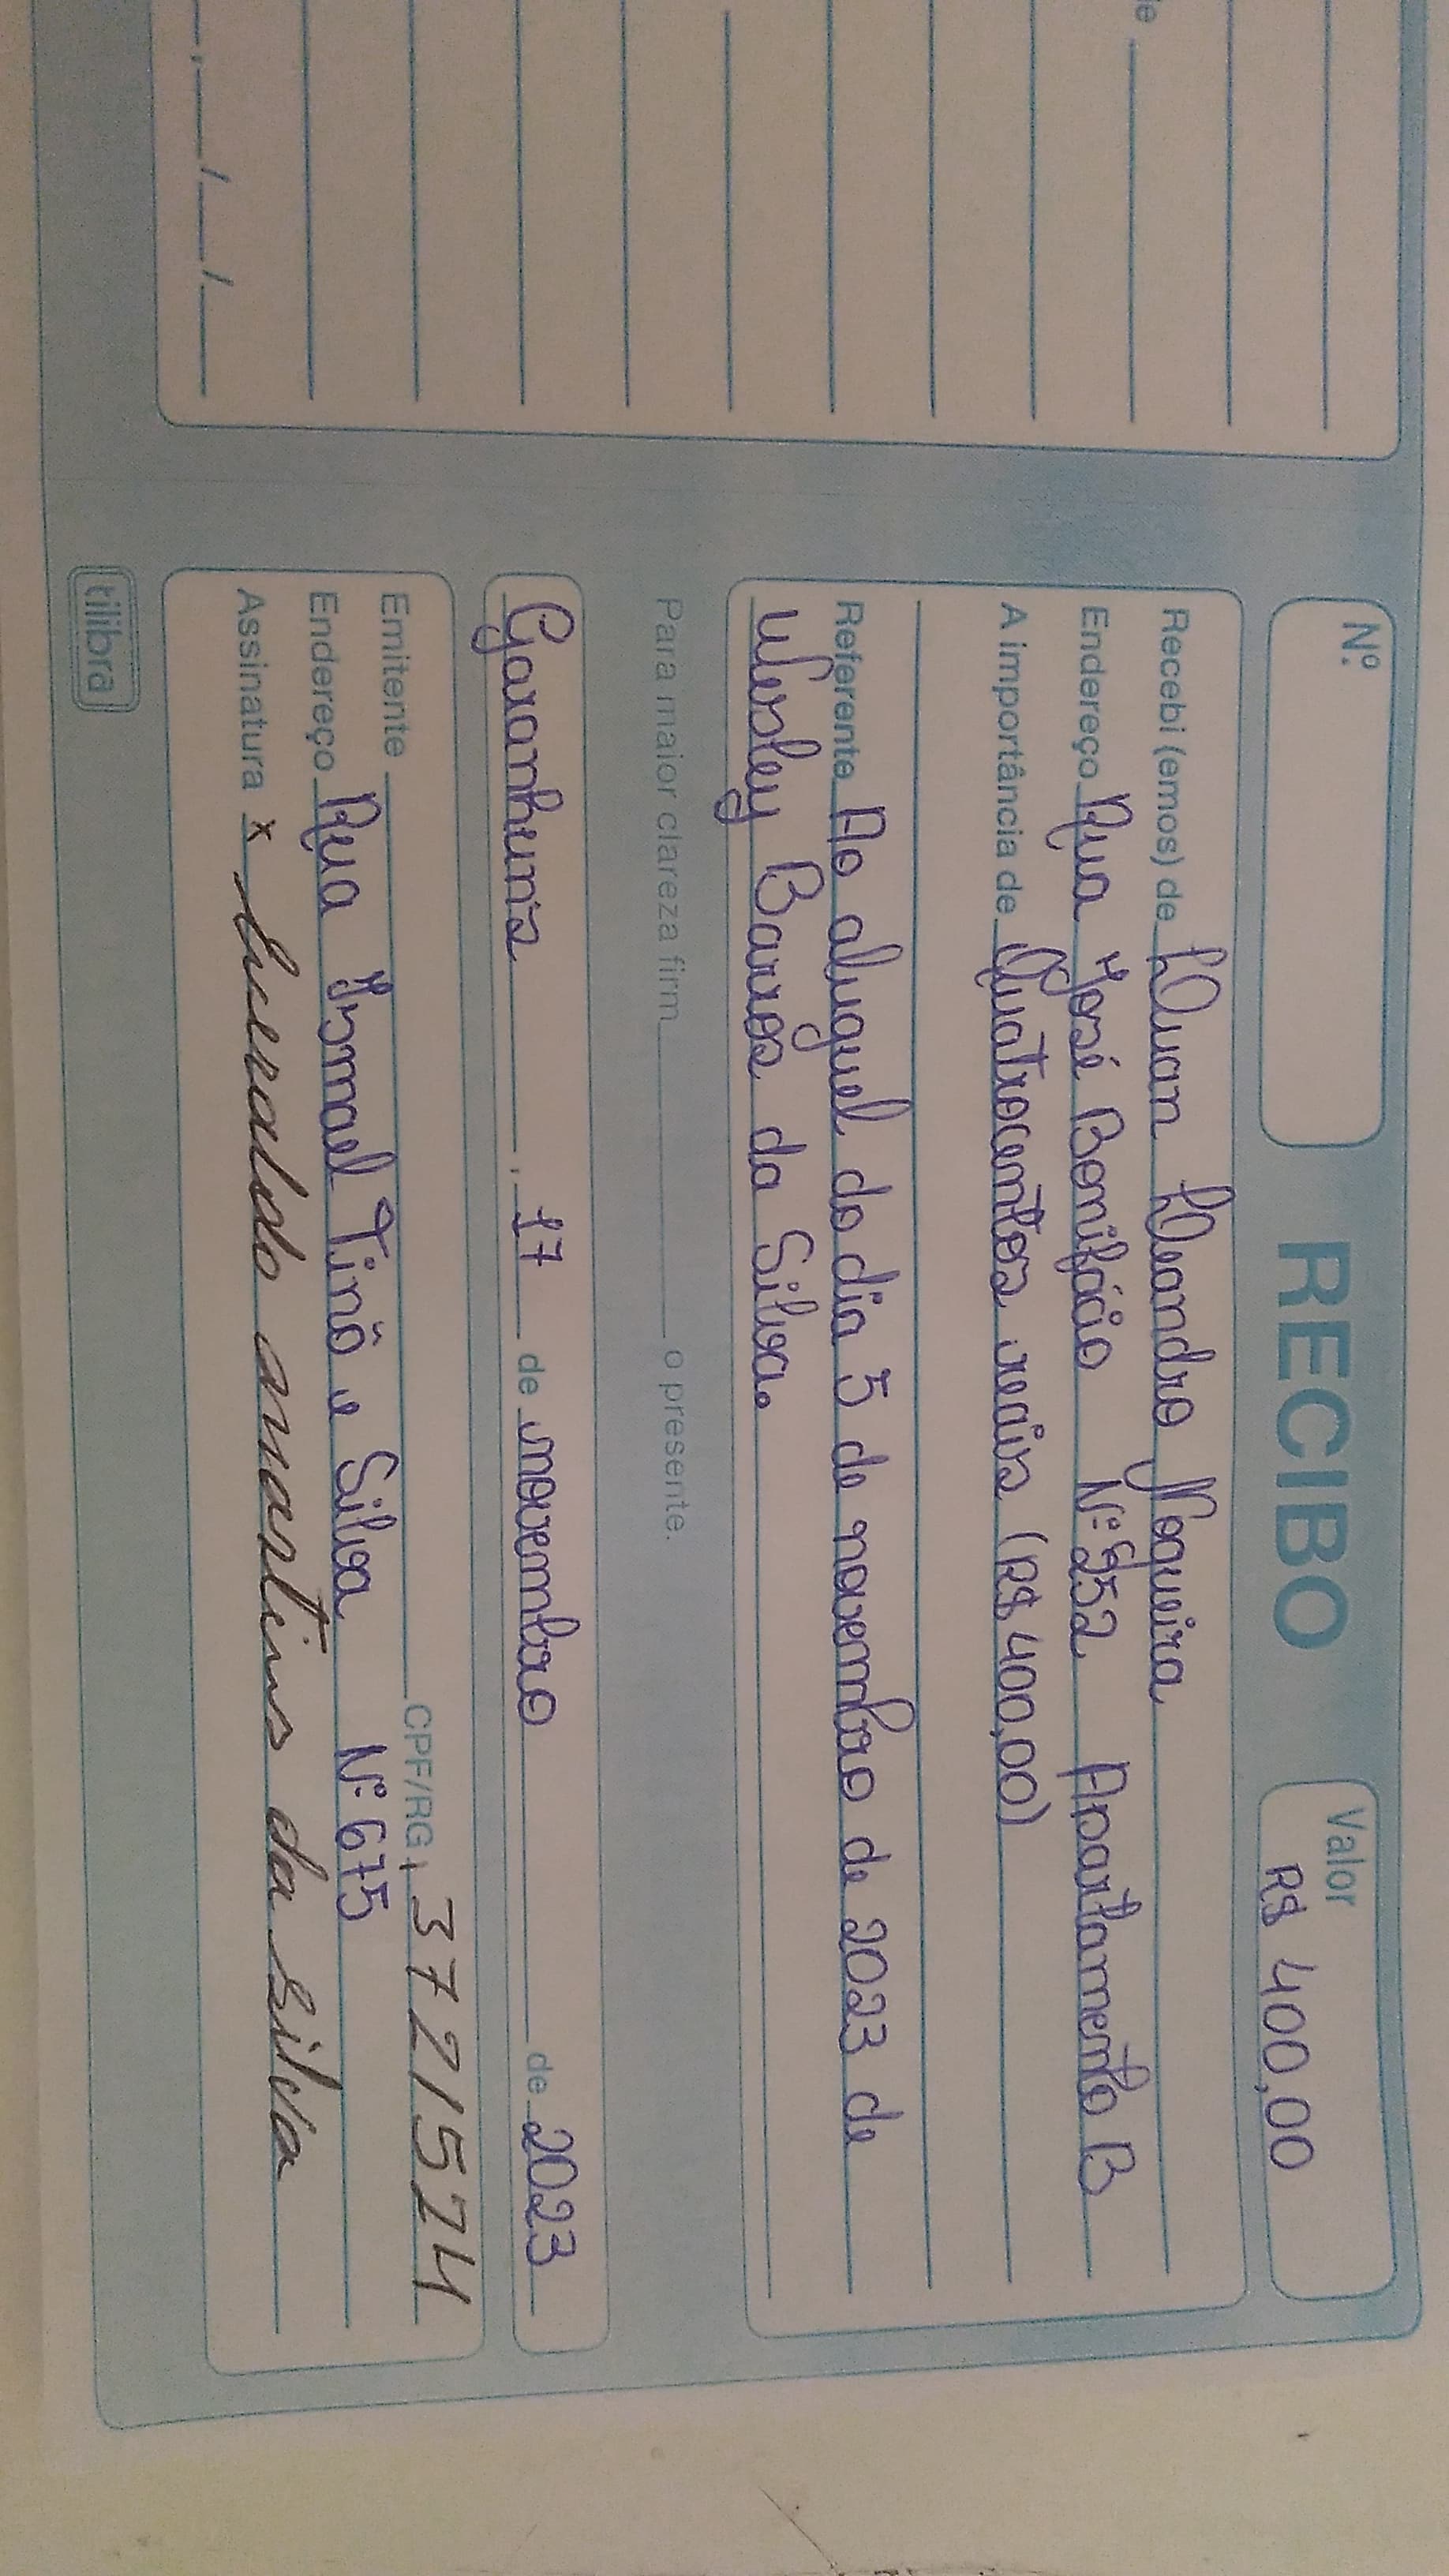 Nº
RECIBO
Valor
R$ 400,00
Recebi (emos) de Luan Leandro Nogueira
Endereço Rua José Bonifácio Nº 252 Apartamento B
A importância de Quatrocentos reais (R$ 400,00)
Referente Ao aluguel do dia 5 de novembro de 2023 de
Wesley Barros da Silva.
Para maior clareza firm o presente.
Garanhuns, 17 de novembro de 2023
Emitente CPF/RG 3721524
Endereço Rua Ismael Tinô e Silva Nº 675
Assinatura x Everaldo martins da silva
tilibra